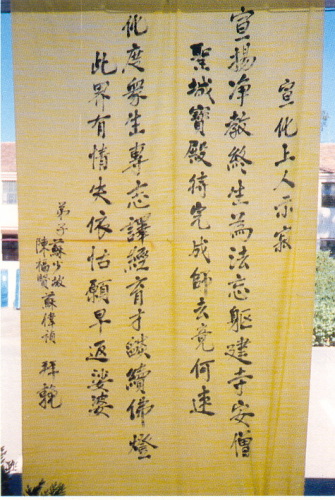 宣化上人示寂
宣揚净教終生為法忘軀建寺安僧
聖城寶殿待完成師去竟何速
化度衆生專志譯經育才談續佛燈
此界有情失依怙願早返娑婆
弟子蘇少敏蘇偉順
陳楊賢
拜輓